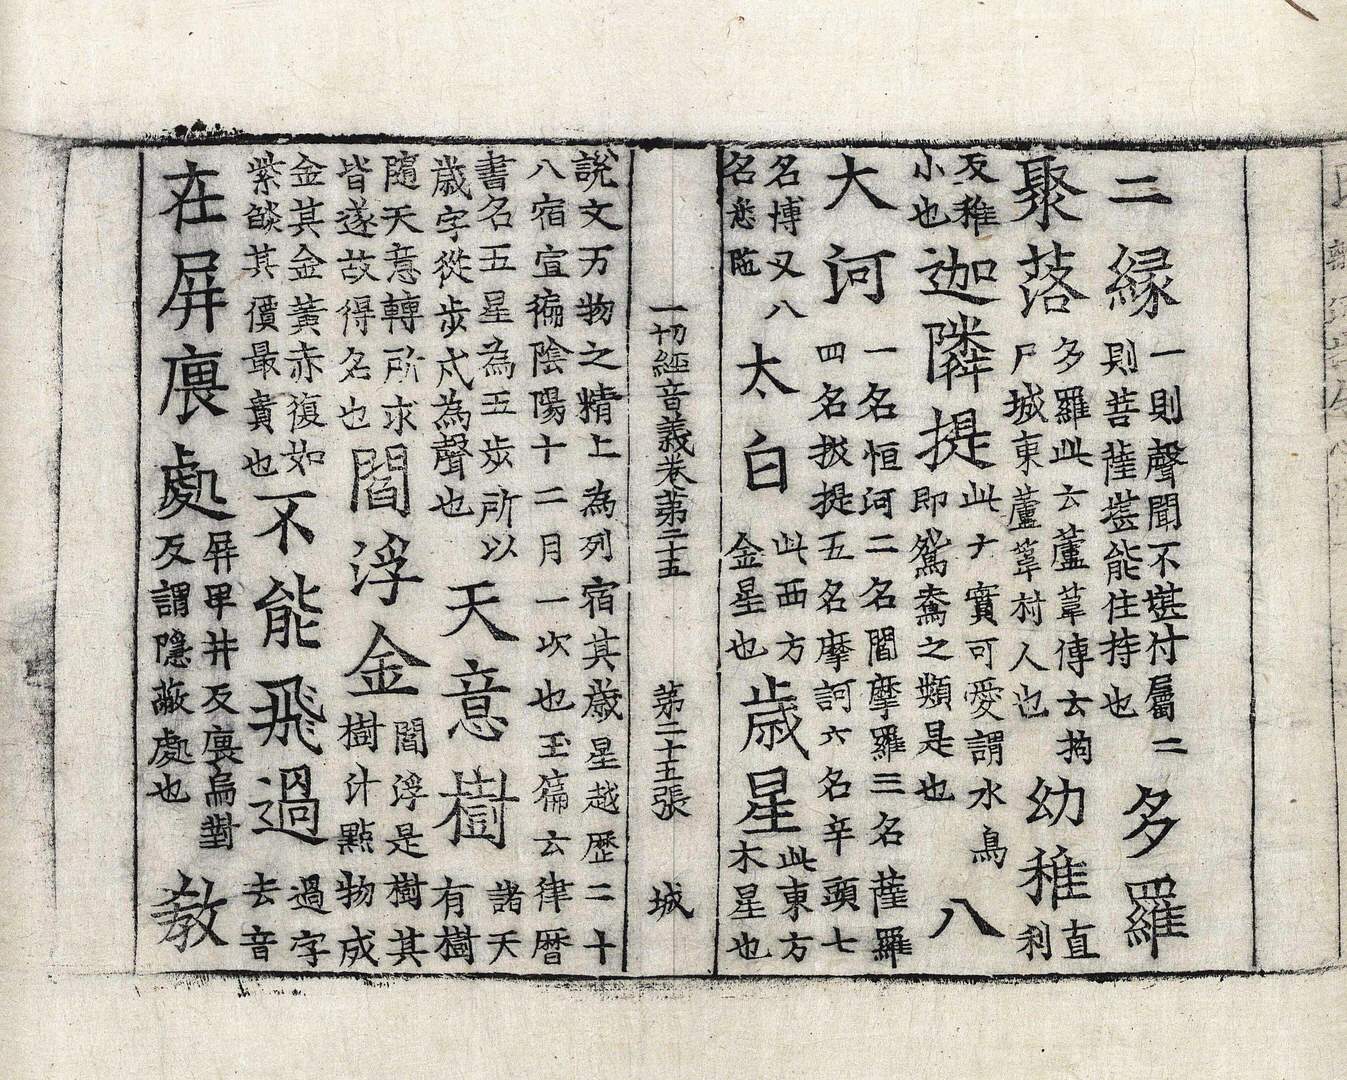 二緣
一則聲聞不堪付屬二
則菩薩堪能住持也
多羅
聚落
多羅此云蘆葦傳云拘
尸城東蘆葦村人也
幼稚
直
利
反稚
小也
迦隣提
此ナ實可愛謂水鳥
即鴛鴦之類是也
八
大河
一名恒河二名閻摩羅三名薩羅
四名掇提五名摩訶六名辛頭七
名博叉八
名悉陁
太白
此西方
金星也
歲星
此東方
木星也
一切經音義卷第二十五 第二十五張 城
說文万物之精上為列宿其歲星越歷二十
八宿宣徧陰陽十二月一次也玉篇云律曆
書名五星為五步所以
歲字從步戌為聲也
天意樹
諸天
有樹
隨天意轉所求
皆遂故得名也
閻浮金
閻浮是樹其
樹汁點物成
金其金黃赤復如
紫焰其價最貴也
不能飛過
過字
去音
在屏處
屏卑井反烏對
反謂隱蔽處也
教